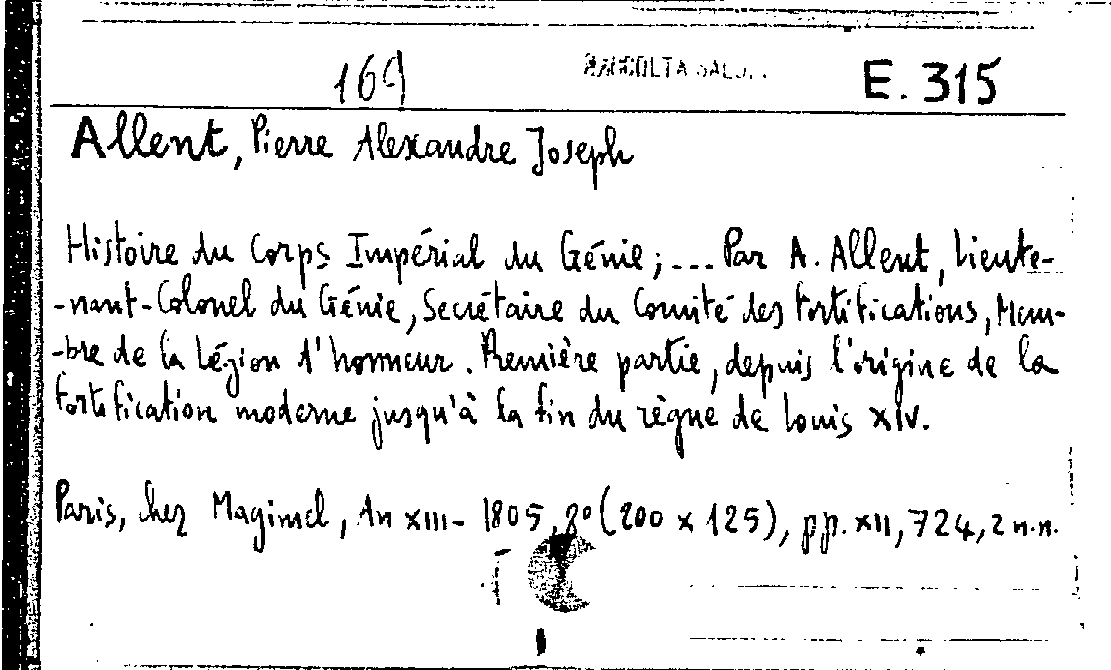 169 RACCOLTA E. 315
Allent, Pierre Alexandre Joseph
Histoire du Corps Impérial du Génie; ... Par A. Allent, Lieute-
-nant-Colonel du Génie, Secrétaire du Comité des Fortifications, Mem-
-bre de la Légion d'honneur. Première partie, depuis l'origine de la
fortification moderne jusqu'à la fin du règne de Louis XIV.
Paris, chez Magimel, An XIII - 1805, 8° (200 x 125), pp. XII, 724, 2 n.n.